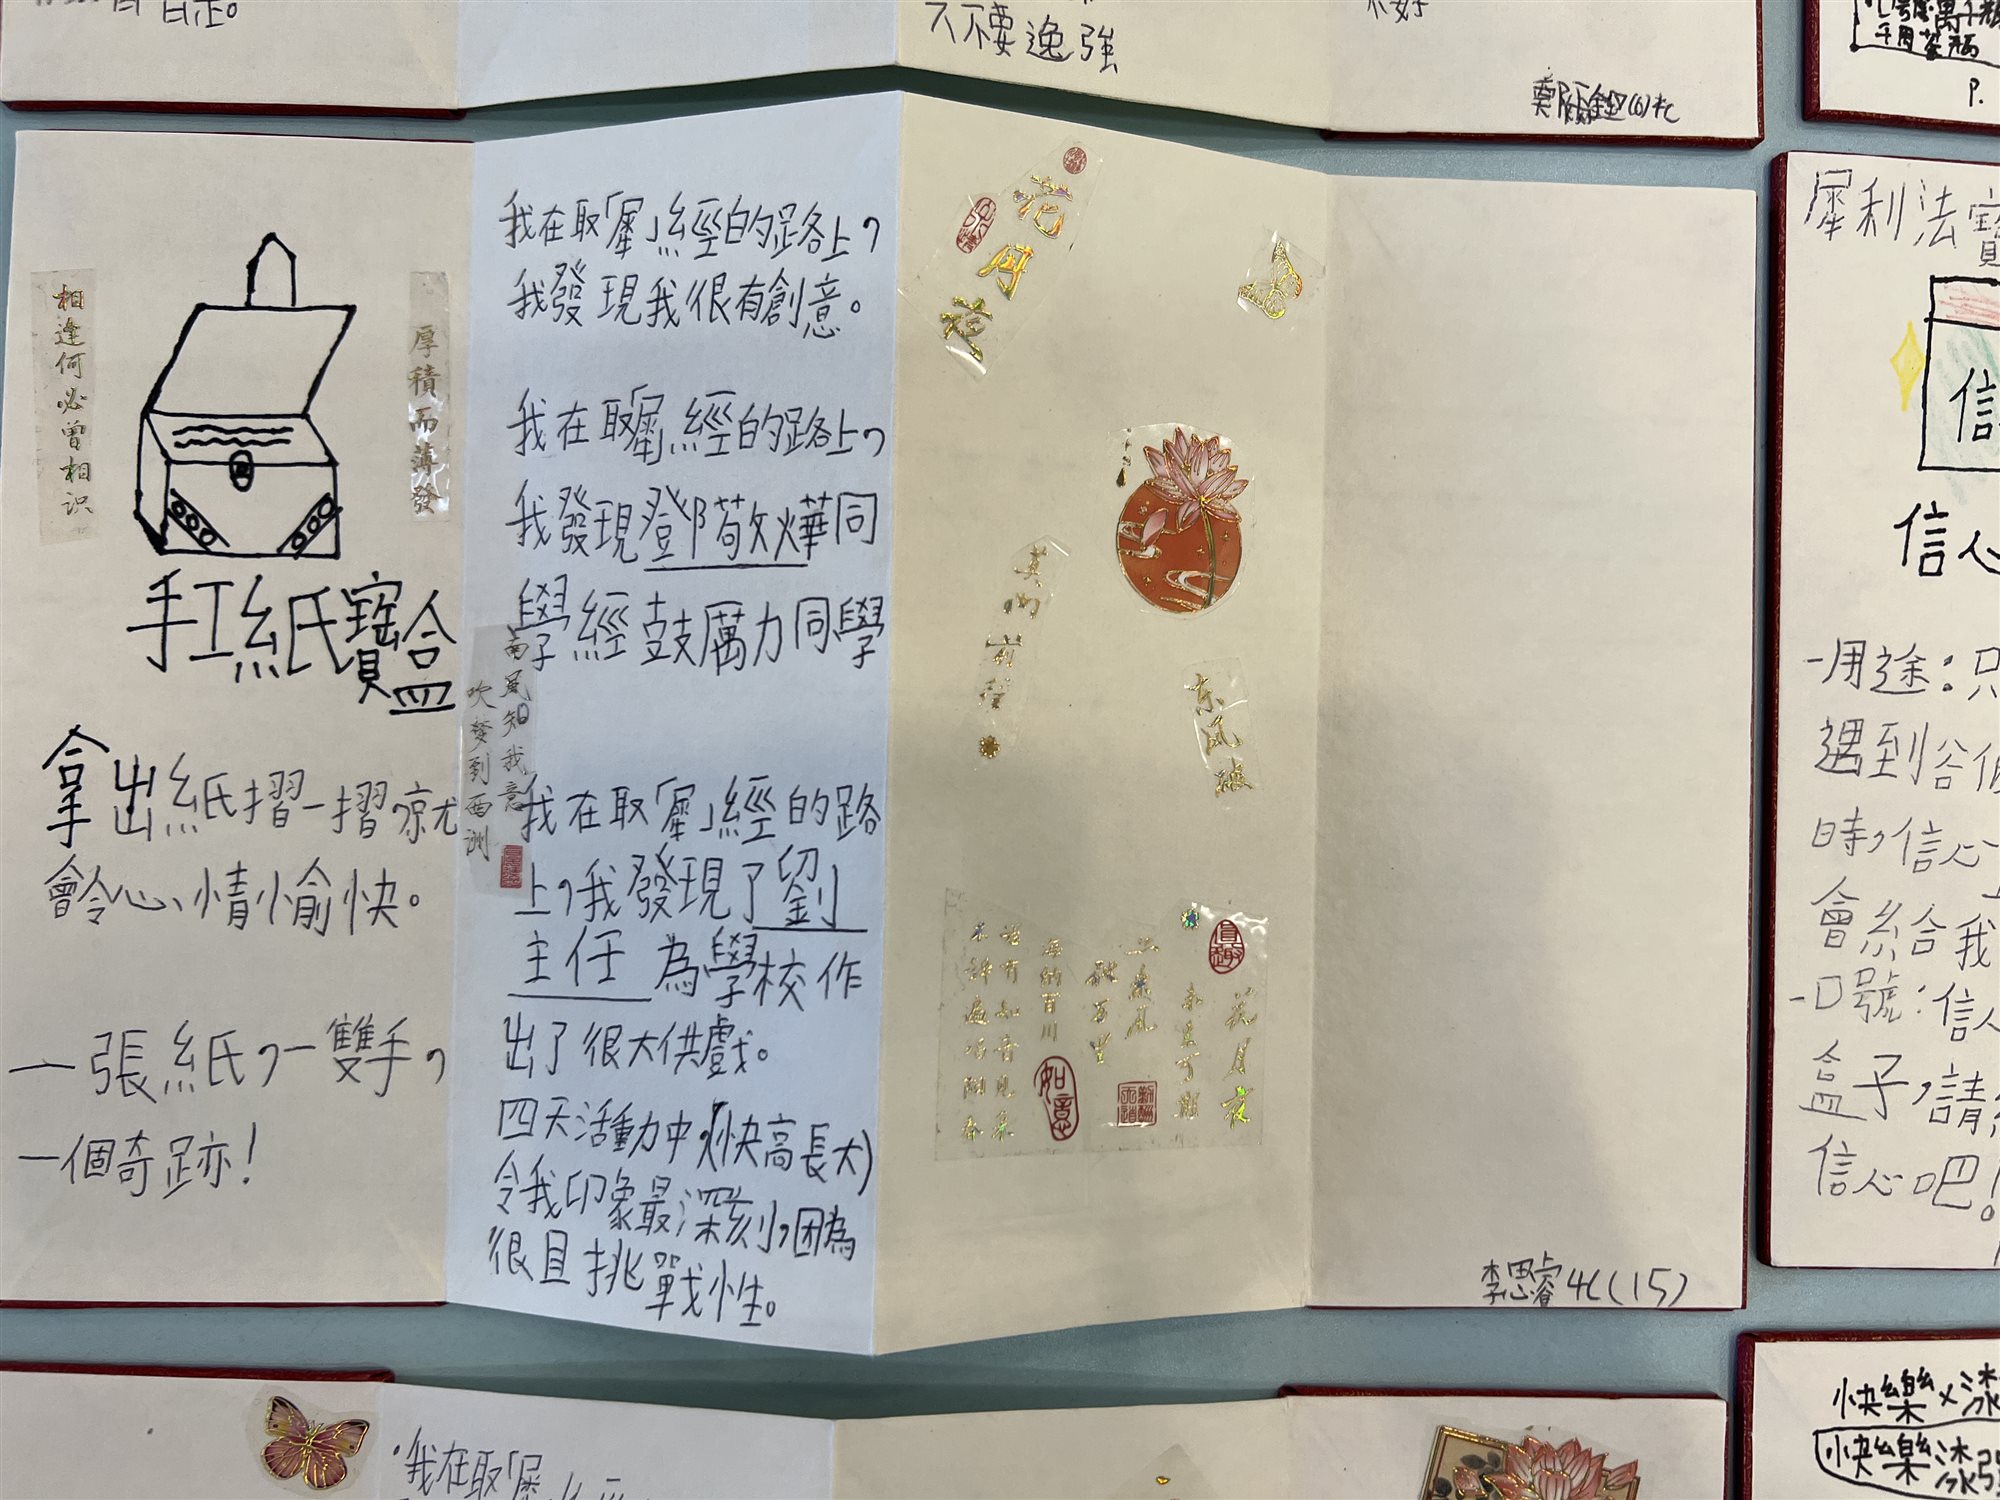 不要逸強
不好
相逢何必曾相识
厚積而薄發
手工紙寶盒
拿出紙摺一摺，就
會令心情愉快。
一張紙，一雙手，
一個奇跡！
南風知我意
吹夢到西洲
我在取「犀」經的路上，
我發現我很有創意。
我在取「犀」經的路上，
我發現鄧敬燁同
學經鼓厲力同學
我在取「犀」經的路
上，我發現了劉
主任為學校作
出了很大供戲。
四天活動中，(快高長大)
令我印象最深刻，因為
很且挑戰性。
花月夜
东风破
花月夜
未来可期
海納百川
如意
李思睿4C(15)
犀利法寶
信
信心
-用途：只
遇到
時，信心
會給我
-口號：信
盒子，請
信心吧！
快樂
快樂
我在取「犀